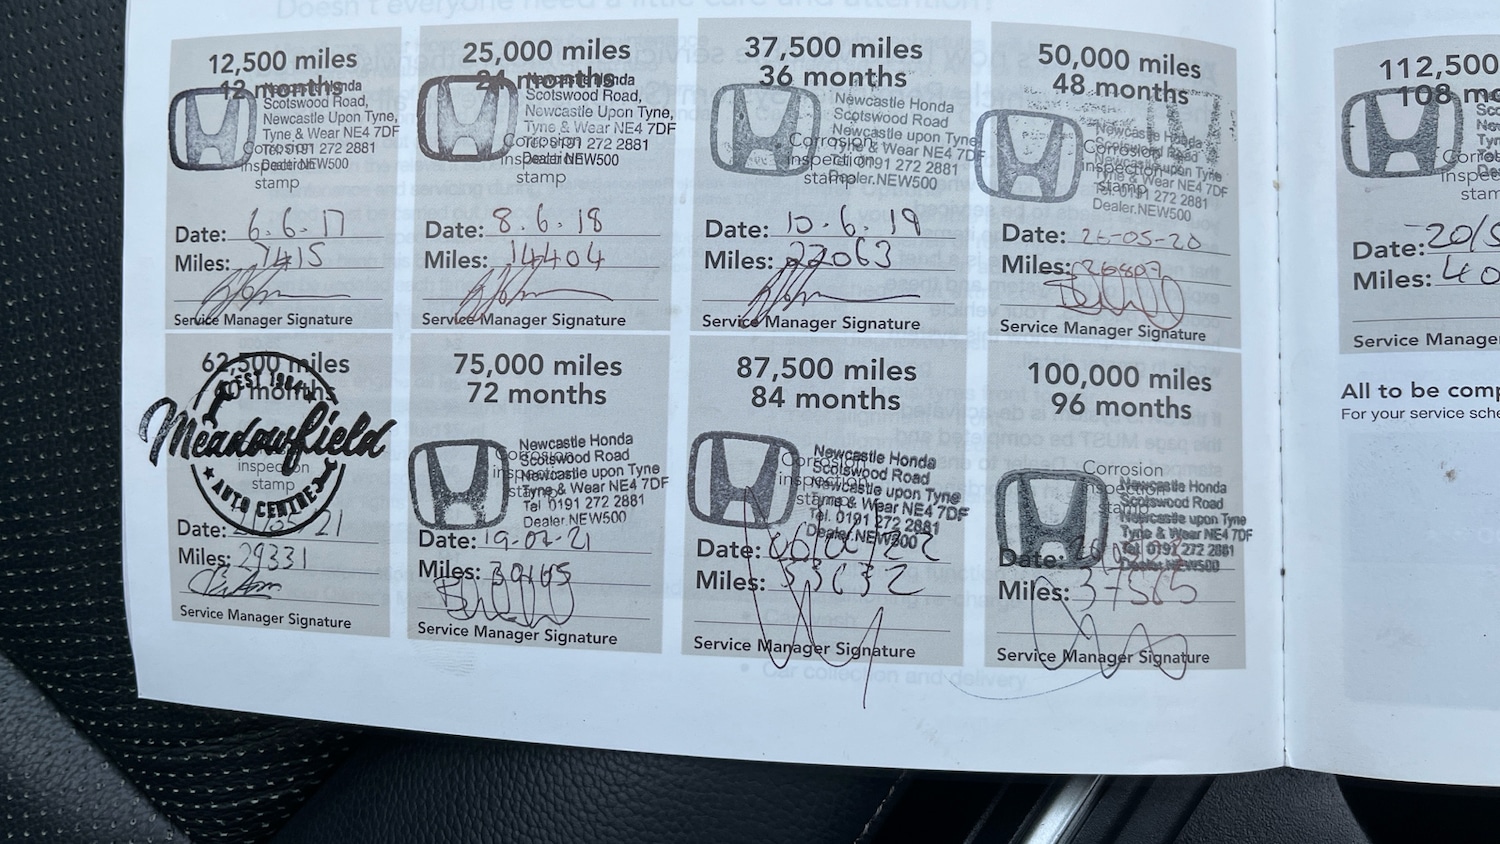 12,500 miles
12 months
Newcastle Honda
Scotswood Road,
Newcastle Upon Tyne,
Tyne & Wear NE4 7DF
Tel. 0191 272 2881
Dealer NEW500
Corrosion
inspection
stamp
Date: 6.6.17
Miles: 7415
Service Manager Signature
25,000 miles
24 months
Newcastle Honda
Scotswood Road,
Newcastle Upon Tyne,
Tyne & Wear NE4 7DF
Tel. 0191 272 2881
Dealer NEW500
Corrosion
inspection
stamp
Date: 8.6.18
Miles: 14404
Service Manager Signature
37,500 miles
36 months
Newcastle Honda
Scotswood Road
Newcastle upon Tyne
Tyne & Wear NE4 7DF
Tel. 0191 272 2881
Dealer.NEW500
Corrosion
inspection
stamp
Date: 10.6.19
Miles: 22063
Service Manager Signature
50,000 miles
48 months
Newcastle Honda
Scotswood Road
Newcastle upon Tyne
Tyne & Wear NE4 7DF
Tel. 0191 272 2881
Dealer.NEW500
Corrosion
inspection
stamp
Date: 26-05-20
Miles: 26807
Service Manager Signature
112,500
108
Date: 20/5
Miles: 40
Service Manager
62,500 miles
60 months
EST 1984
Meadowfield
AUTO CENTRE
inspection
stamp
Date: 21
Miles: 29331
Service Manager Signature
75,000 miles
72 months
Newcastle Honda
Scotswood Road
Newcastle upon Tyne
Tyne & Wear NE4 7DF
Tel 0191 272 2881
Dealer.NEW500
Corrosion
inspection
stamp
Date: 19-07-21
Miles: 30165
Service Manager Signature
87,500 miles
84 months
Newcastle Honda
Scotswood Road
Newcastle upon Tyne
Tyne & Wear NE4 7DF
Tel. 0191 272 2881
Dealer.NEW500
Corrosion
inspection
stamp
Date:
Miles: 33632
Service Manager Signature
100,000 miles
96 months
Newcastle Honda
Scotswood Road
Newcastle upon Tyne
Tyne & Wear NE4 7DF
Tel 0191 272 2881
Dealer.NEW500
Corrosion
inspection
stamp
Date:
Miles: 37565
Service Manager Signature
All to be
For your service